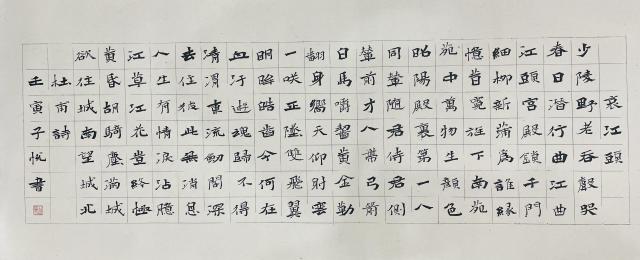 哀江頭
少陵野老吞聲哭
春日潛行曲江曲
江頭宮殿鎖千門
細柳新蒲為誰綠
憶昔霓旌下南苑
苑中萬物生顏色
昭陽殿裏第一人
同輦隨君侍君側
輦前才人帶弓箭
白馬嚼齧黃金勒
翻身嚮天仰射雲
一咲正墜雙飛翼
明眸皓齒今何在
血汙遊魂歸不得
清渭東流劍閣深
去住彼此無消息
人生有情淚沾臆
江草江花豈終極
黃昏胡騎塵滿城
欲往城南望城北
杜甫詩
壬寅子悅書